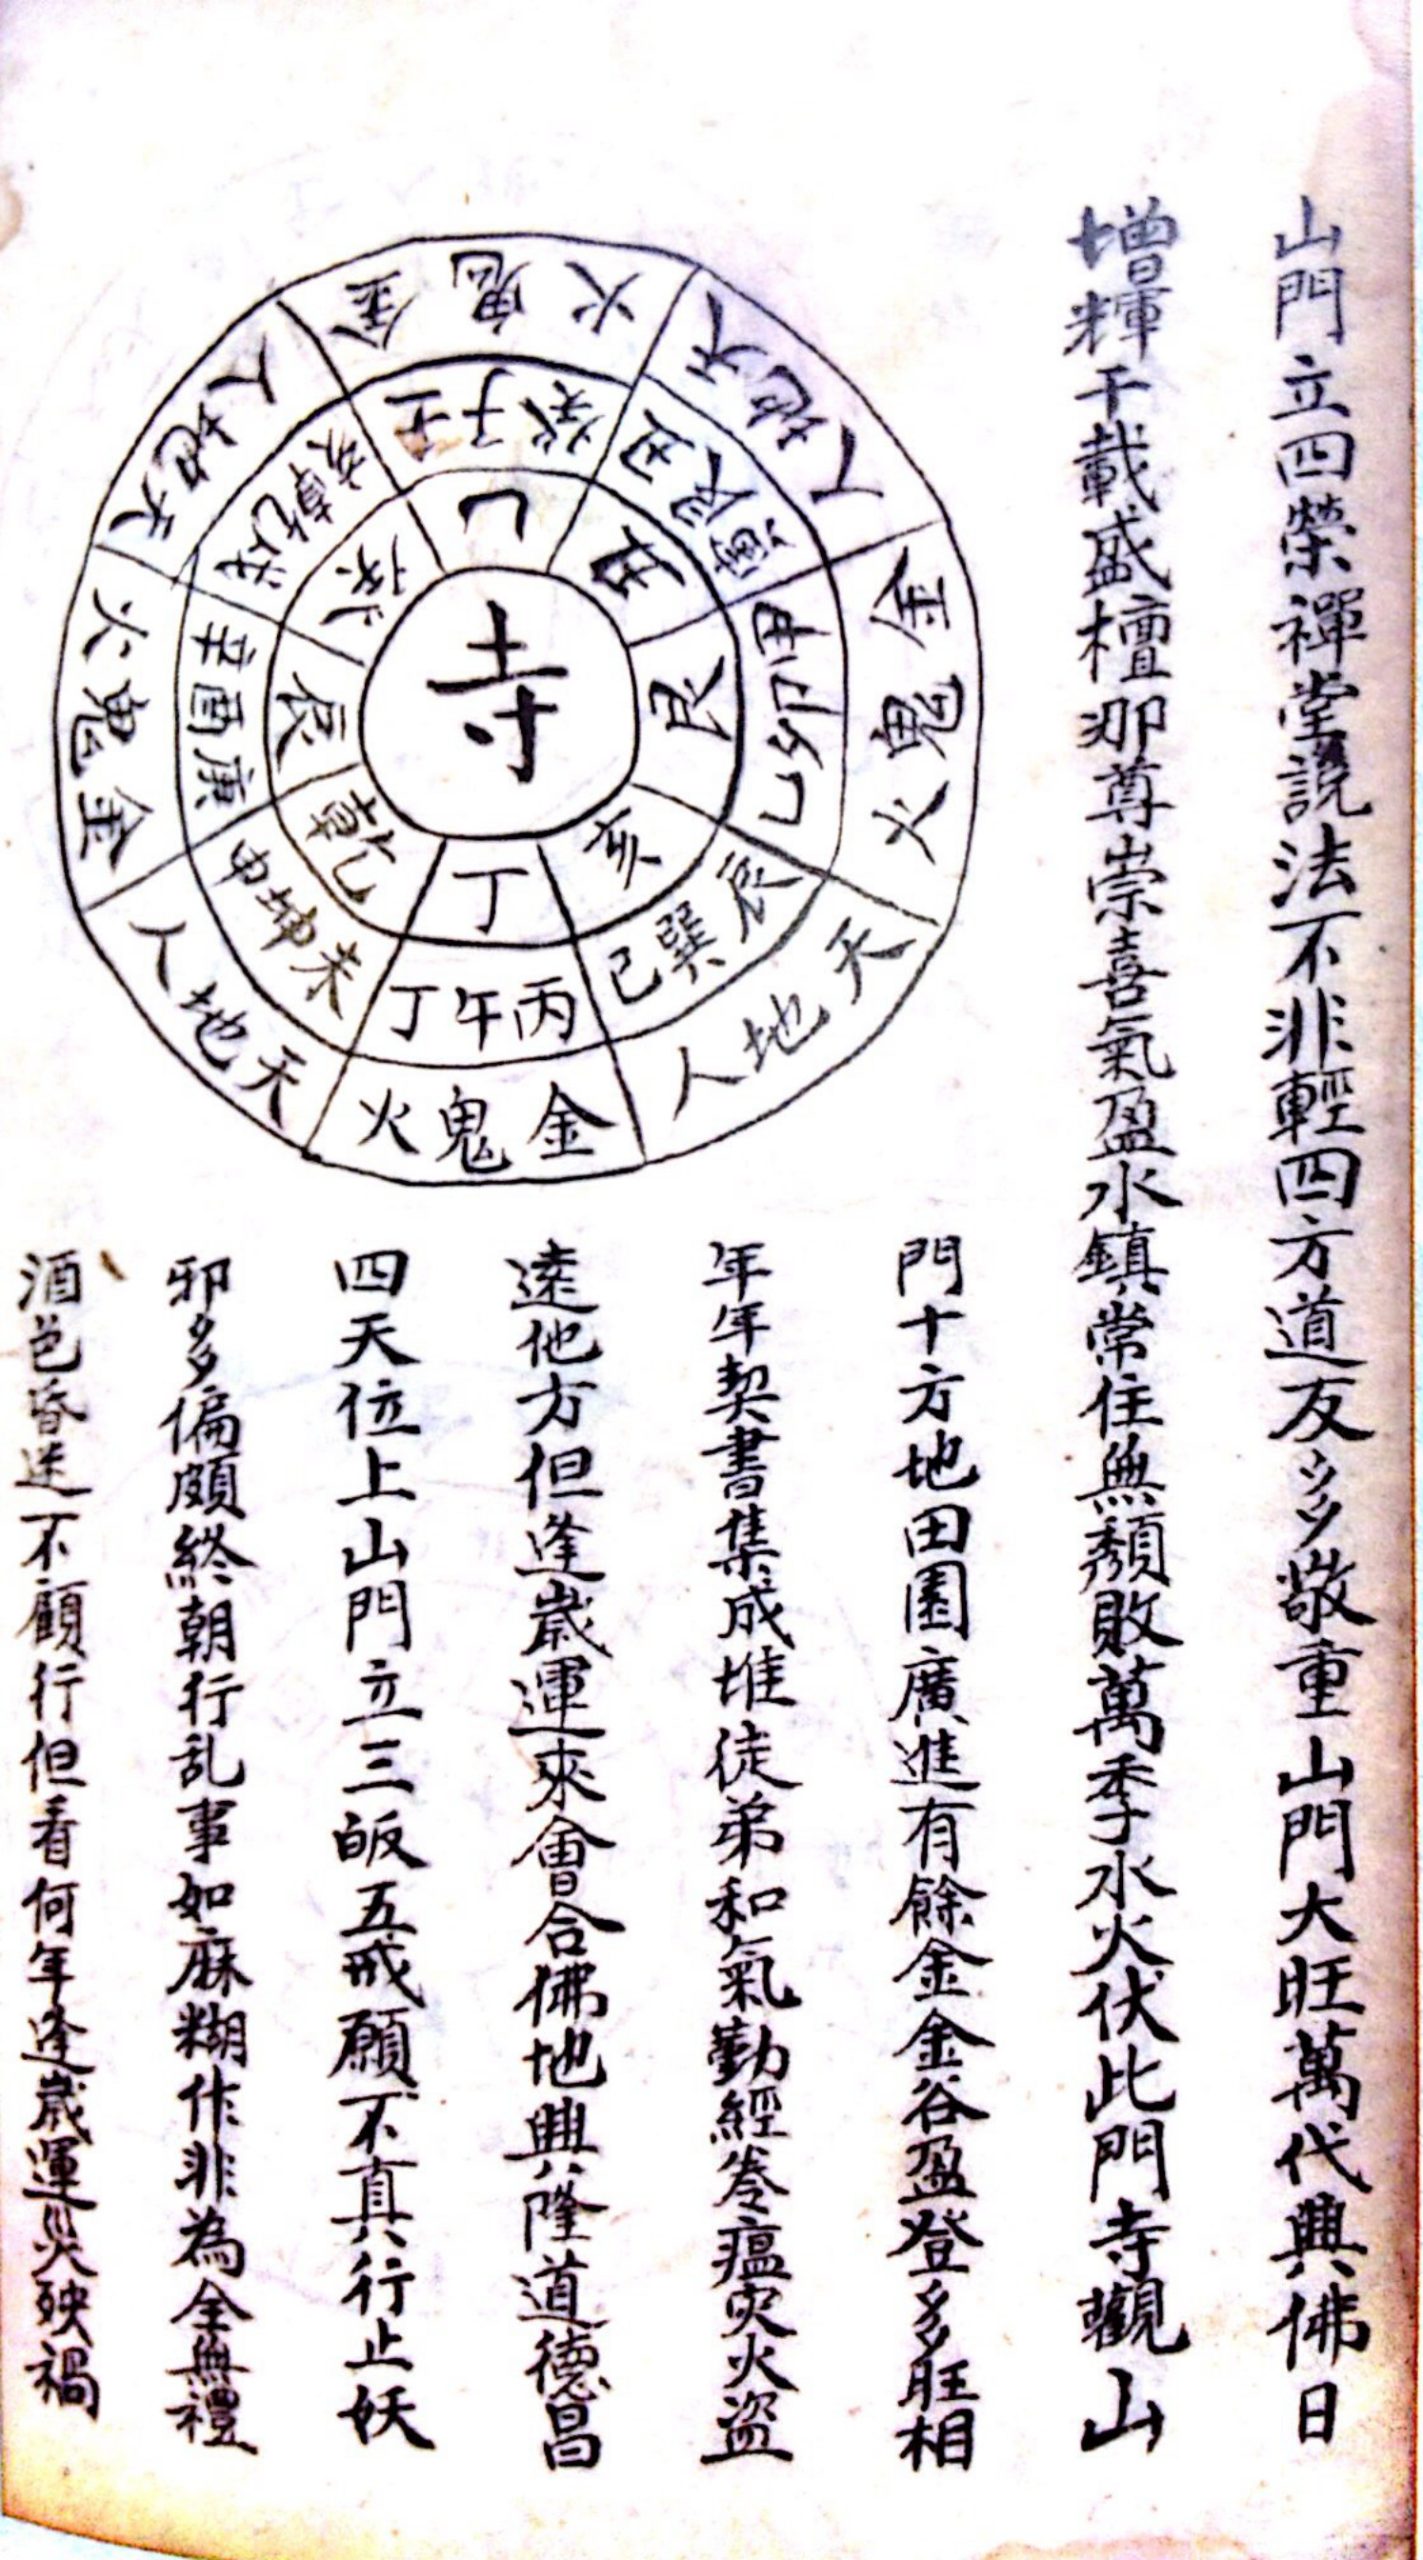 山門立四榮禪堂說法不非輕四方道友多敬重山門大旺萬代興佛日
增輝千載盛檀那尊崇喜氣盈水鎮常住無頹敗萬季水火伏此門寺觀山
門十方地田園廣進有餘金金谷盈登多旺相
年年契書集成堆徒弟和氣勤經卷瘟灾火盜
遠他方但逢歲運來會合佛地興隆道德昌
四天位上山門立三皈五戒願不真行止妖
邪多偏頗終朝行乱事如麻糊作非為全無禮
酒色昏迷不顧行但看何年逢歲運災殃禍
寺
丁
亥
艮
丑
乙
辰
乾
丁午丙
巳巽辰
乙卯甲
艮丑
癸子壬
亥乾戌
辛酉庚
申坤未
火鬼金
人地天
火鬼金
人地天
火鬼金
人地天
火鬼金
人地天